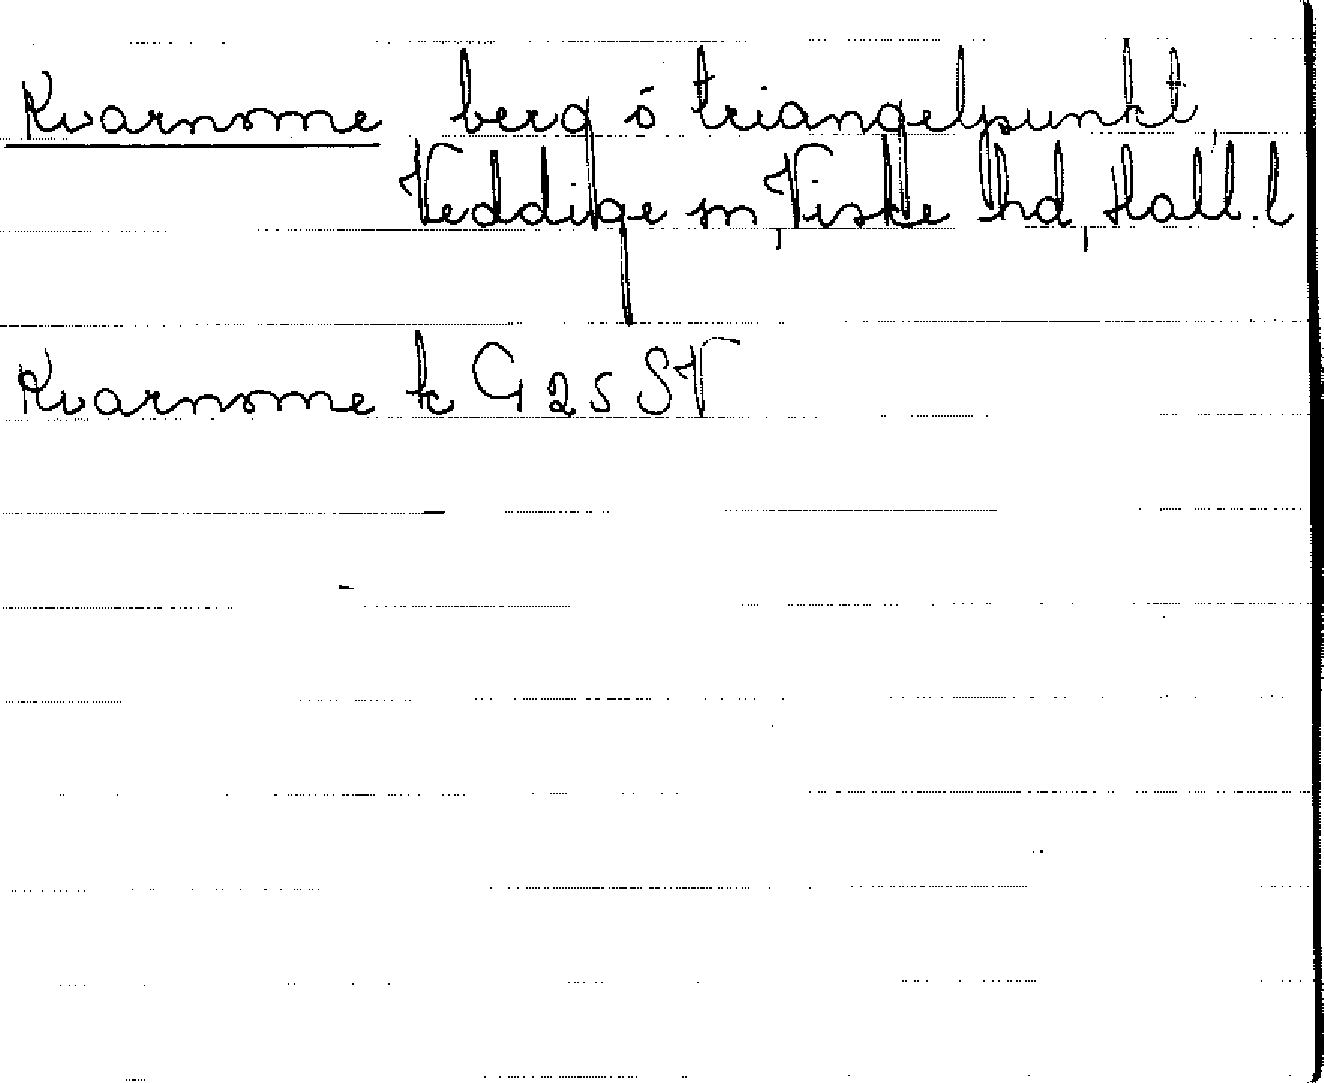 Kvarnsme berg ó triangelpunkt,
Veddige sn, Viske hd, Hall. l
Kvarnsme tc G 25 SV